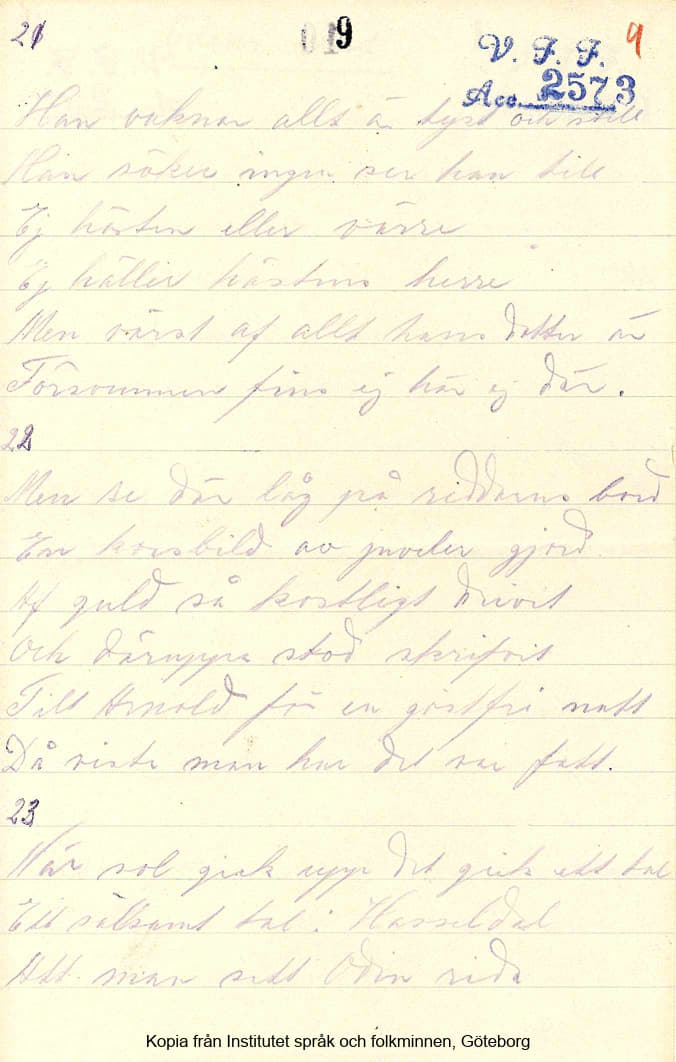 21
019
9
V. F. F.
Acc. 2573
Han vaknar allt är tyst och still
Han söker ingen ser han till
Ej hästen eller värre
Ej häller hästens herre
Men värst af allt hans dotter är
Försvunnen fins ej här ej där.
22
Men se där låg på riddarns bord
En korsbild av juveler gjord
Af guld så kostligt drivit
Och däruppa stod skrifvit
Till Arnold för en gästfri natt
Då viste man hur det var fatt.
23
När sol gick upp det gick ett tal
Ett sälsamt tal i Hasseldal
Att man sett Odin rida
Kopia från Institutet språk och folkminnen, Göteborg